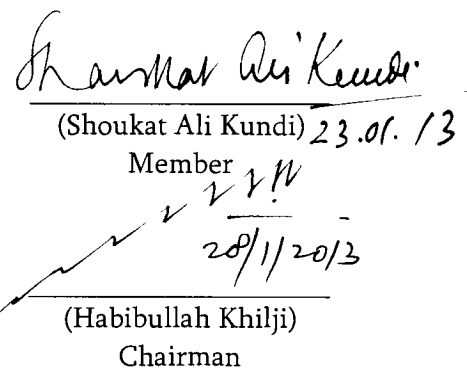 Shaukat Ali Kundi
(Shoukat Ali Kundi) 23.01.13
Member
28/1/2013
(Habibullah Khilji)
Chairman